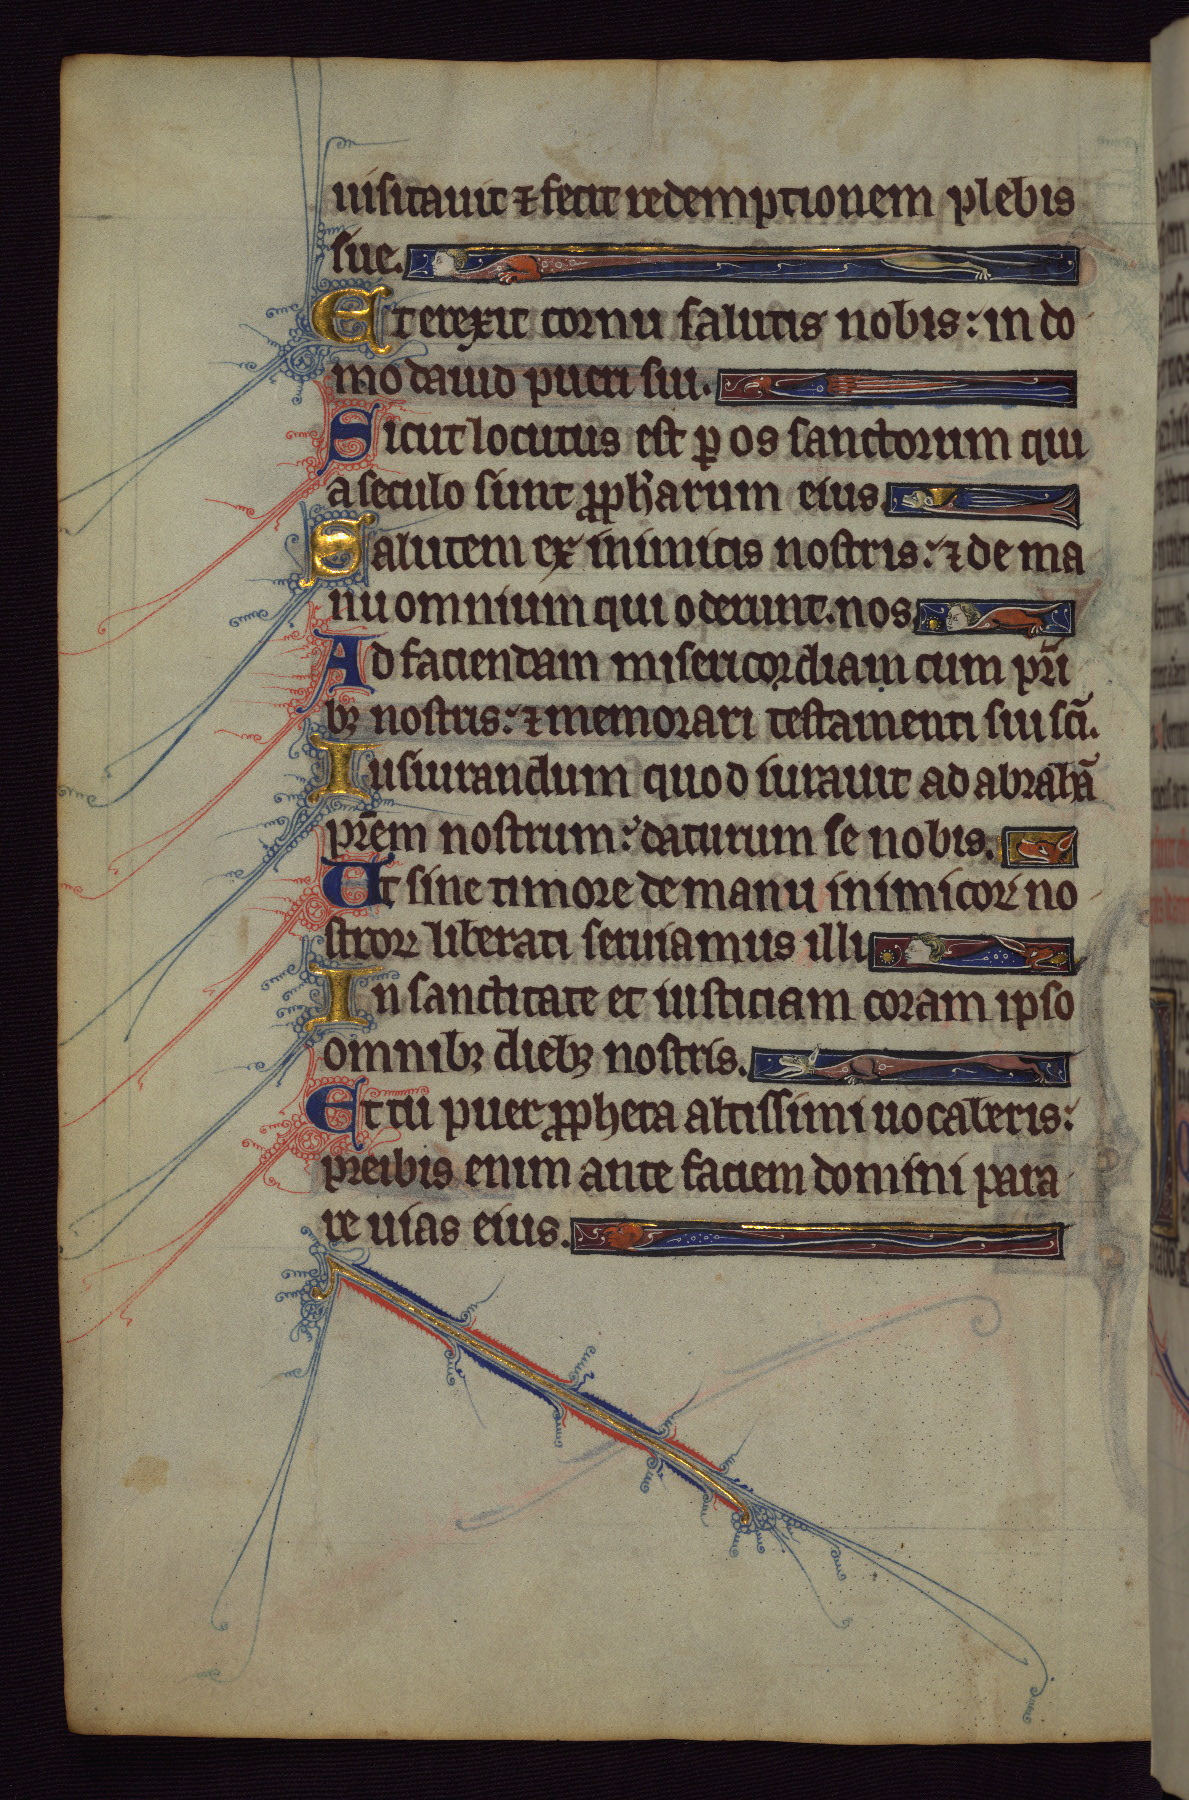 uisitauit ⁊ fecit redemptionem plebis
sue.
Et erexit cornu salutis nobis: in do
mo dauid pueri sui.
Sicut locutus est ꝑ os sanctorum qui
a seculo sunt ꝓph̄arum eius.
Salutem ex inimicis nostris: ⁊ de ma
nu omnium qui oderunt. nos.
Ad faciendam misericordiam cum pr̄i
bꝫ nostris: ⁊ memorari testamenti sui sc̄i.
Iusiurandum quod iurauit ad abrahā
pr̄em nostrum: daturum se nobis.
Ut sine timore de manu inimicoꝝ no
stroꝝ liberati seruiamus illi
In sanctitate et iusticiam coram ipso
omnibꝫ diebꝫ nostris.
Et tu puer ꝓpheta altissimi uocaberis:
preibis enim ante faciem domini para
re uias eius.